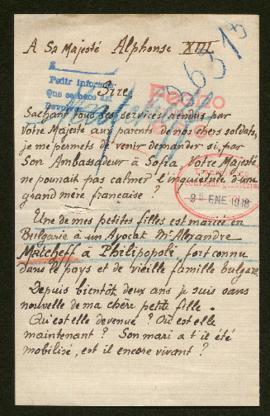 A Sa Majesté Alphonse XIII
Pedir inform
Que se hace en
Sire,
Fecho
Sachant tous les services rendus par
Votre Majesté aux parents de nos chers soldats,
je me permets de venir demander si, par
Son Ambassadeur à Sofia, Votre Majesté
ne pourrait pas calmer l'inquiétude d'une
grand mère française ?
9 ENE 1918
Une de mes petites filles est mariée en
Bulgarie à un Avocat Mr Alexandre
Matcheff à Philipopoli, fort connu
dans le pays et de vieille famille bulgare.
Depuis bientôt deux ans je suis sans
nouvelle de ma chère petite fille.
Qu'est elle devenue ? Où est elle
maintenant ? Son mari a t'il été
mobilisé, est il encore vivant ?